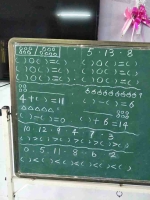 5 . 13 . 8
( )○( )=( ) ( )○( )=( )
( )○( )=( ) ( )○( )=( )
( )○( )=( ) ( )○( )=( )
4+( )=11 ( )-( )=6
( )-( )=0 ( )+6=14
10 . 12 . 9 . 4 . 7 . 3
( )>( )>( )>( )>( )>( )
0 . 5 . 11 . 8 . 6 . 2
( )<( )<( )<( )<( )<( )